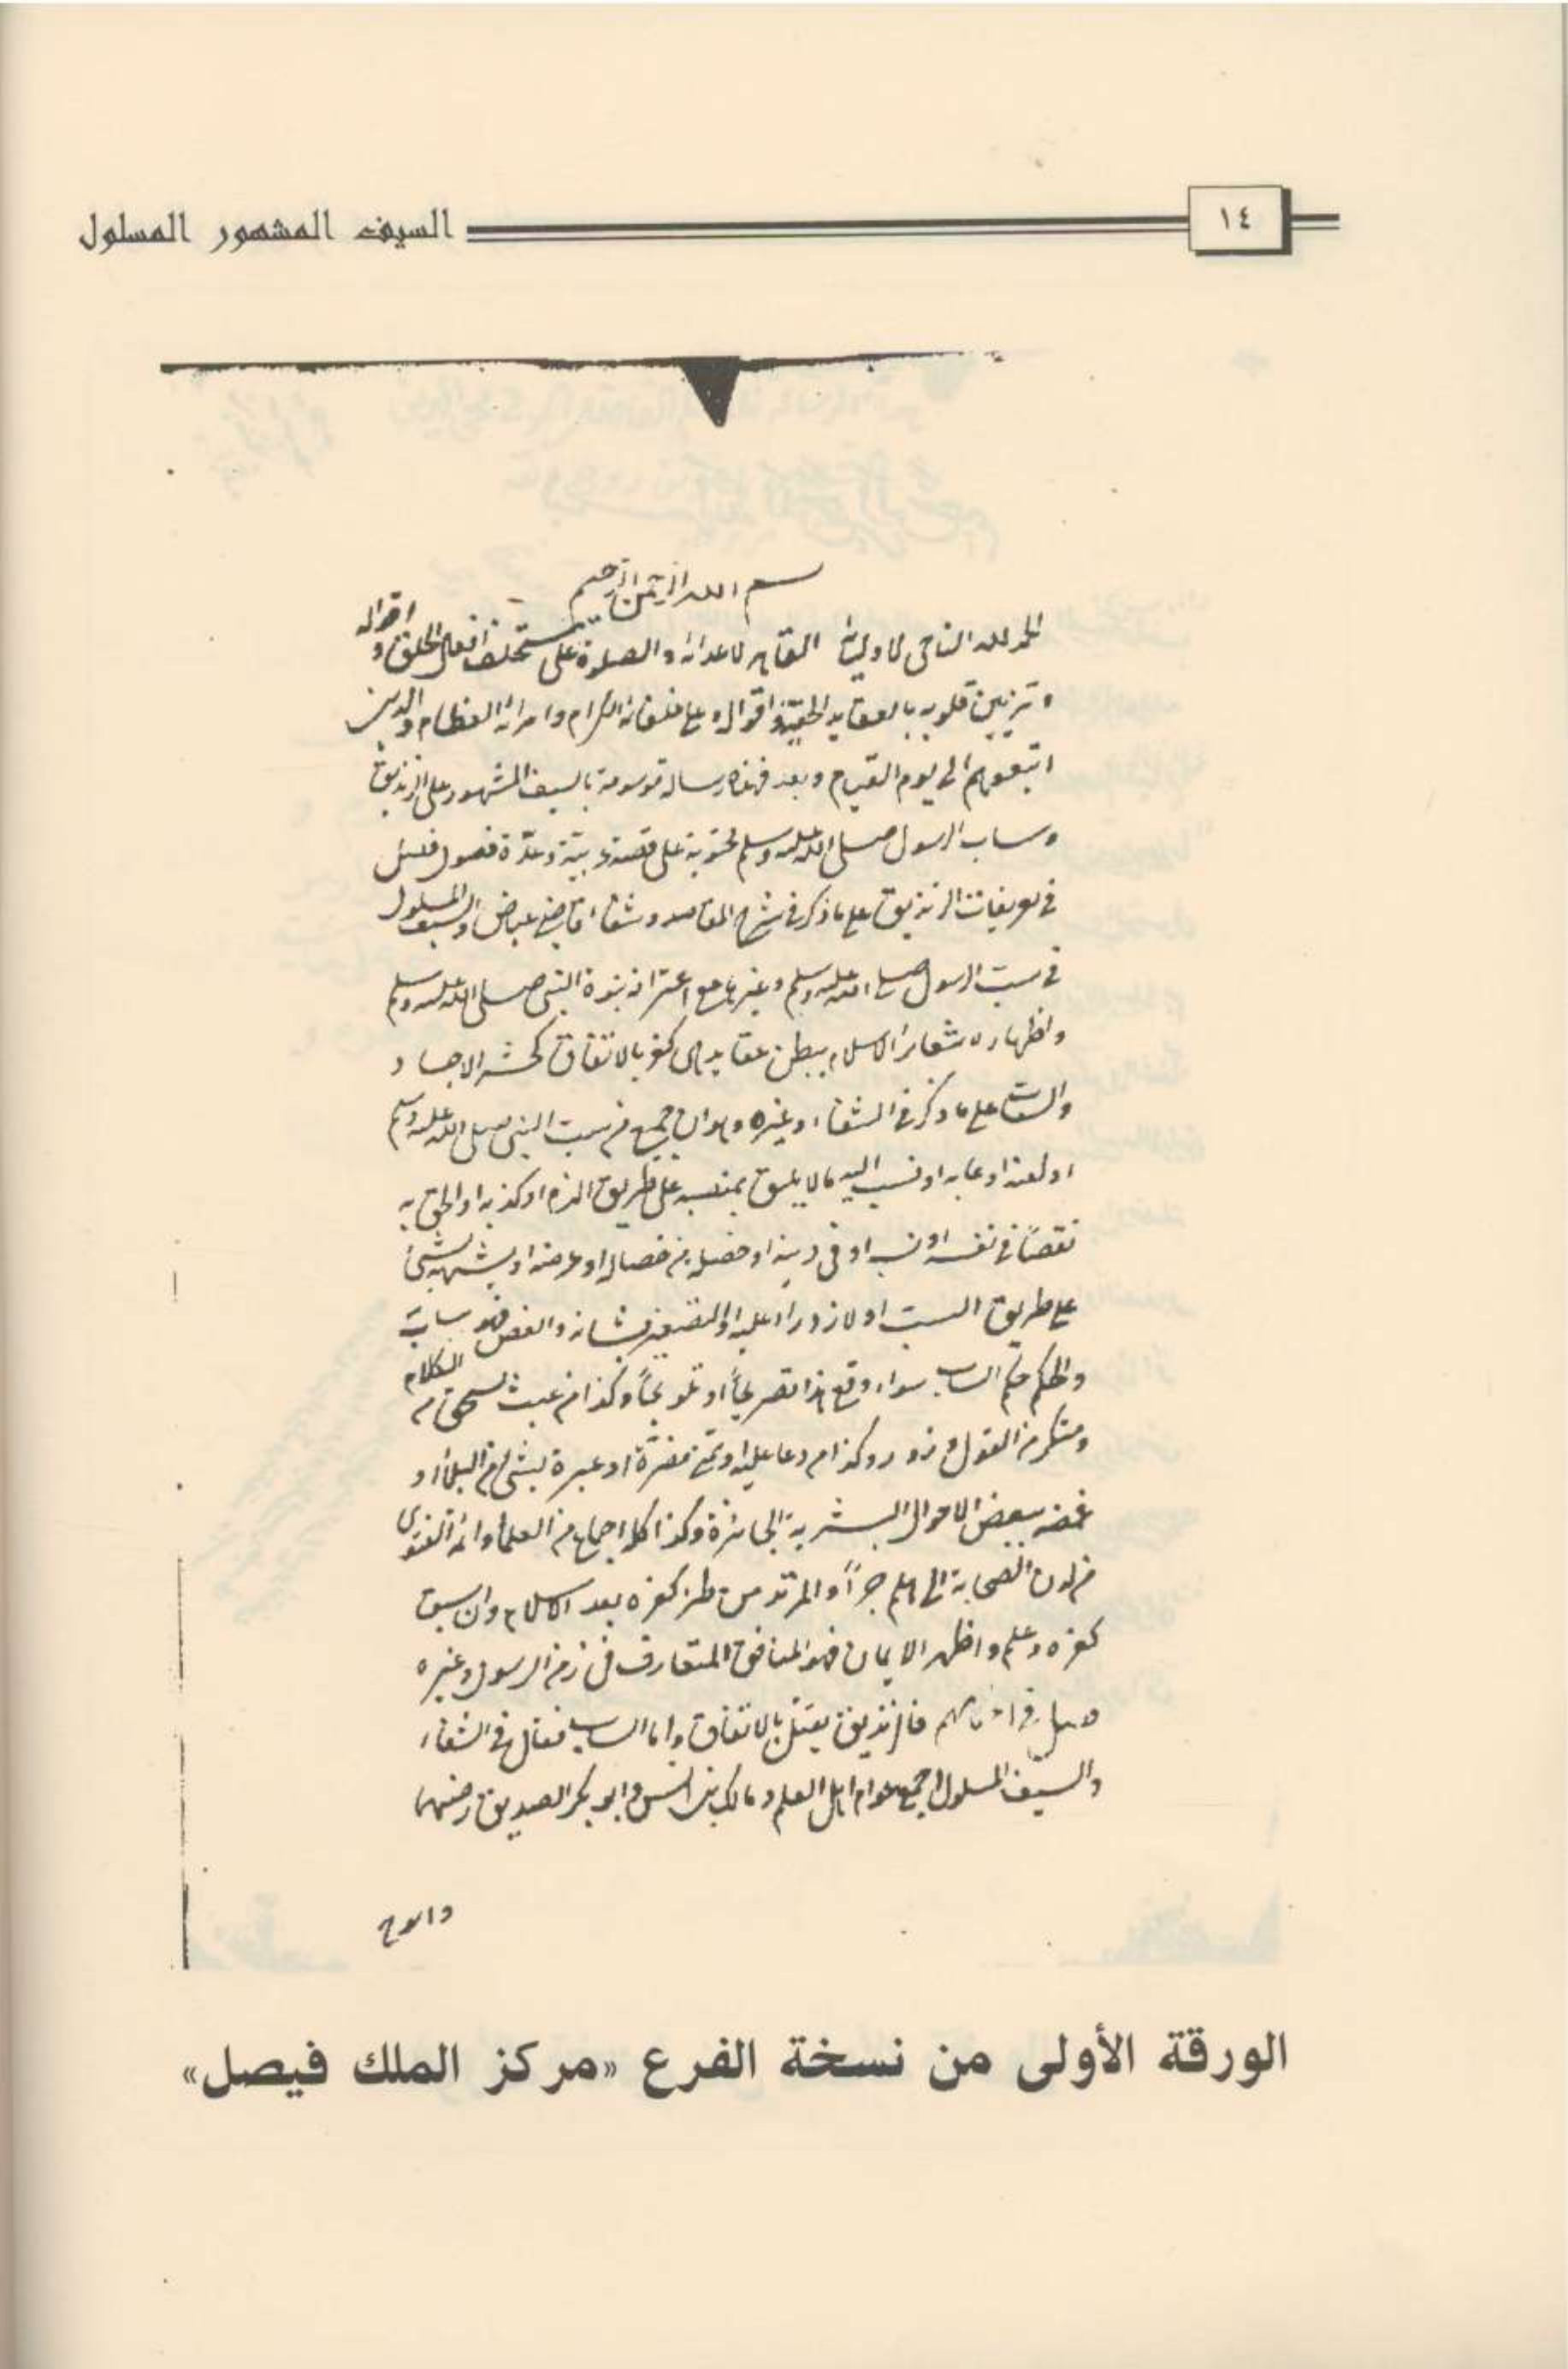 ١٤
السيف المشهور المسلول
بسم الله الرحمن الرحيم
الحمد لله الناجي لاوليائه القاهر لاعدائه والصلوة على مستخلف افعال الخلق و اقواله
و تزيين قلوبه بالعقايد الحقية واقواله وعلى خلفائه الكرام وامرائه العظام والذين
اتبعوهم الى يوم القيام وبعد فهذه رسالة موسومة بالسيف المشهور على الزنديق
وساب الرسول صلى الله عليه وسلم محتوية على قصة وعدة فصول فصل
في تعريفات الزنديق على ما ذكر في شرح المقاصد وشفاء قاضي عياض والسيف المسلول
في سب الرسول صلى الله عليه وسلم وغيرها مع اعترافه بنبوة النبي صلى الله عليه وسلم
واظهاره شعائر الاسلام يبطن عقايد هي كفر بالاتفاق كحشر الاجساد
والساب على ما ذكر في الشفاء وغيره وهو ان جميع من سب النبي صلى الله عليه وسلم
او لعنه او عابه او نسب اليه ما لا يليق بمنصبه على طريق الذم او كذبه او الحق به
نقصًا في نفسه او نسبه او في دينه او خصلة من خصاله او عرضه او يشبهه بشيئ
على طريق السب او لازدراء عليه او التصغير بشانه والغض فهو ساب
والحكم حكم الساب سواء وقع هذا تصريحًا او تلويحًا وكذا من عبث من الكلام
ومنكر من القول و زور وكذا من دعا عليه او تمنى مضرة او عيره بشئ من البلاء او
غمصه ببعض الاحوال البشرية الجائزة وكذا كله اجماع من العلماء وائمة الفتوى
من لدن الصحابة الى هلم جرًّا والمرتد من طرء كفره بعد الاسلام وان سبق
كفره وعلم واظهر الايمان فهو المنافق المتعارف في زمن الرسول وغيره
فصل في احكامهم فالزنديق يقتل بالاتفاق واما الساب فقال في الشفاء
والسيف المسلول اجمع عوام اهل العلم ومالك بن انس وابو بكر الصديق رضي عنهما
الورقة الأولى من نسخة الفرع «مركز الملك فيصل»